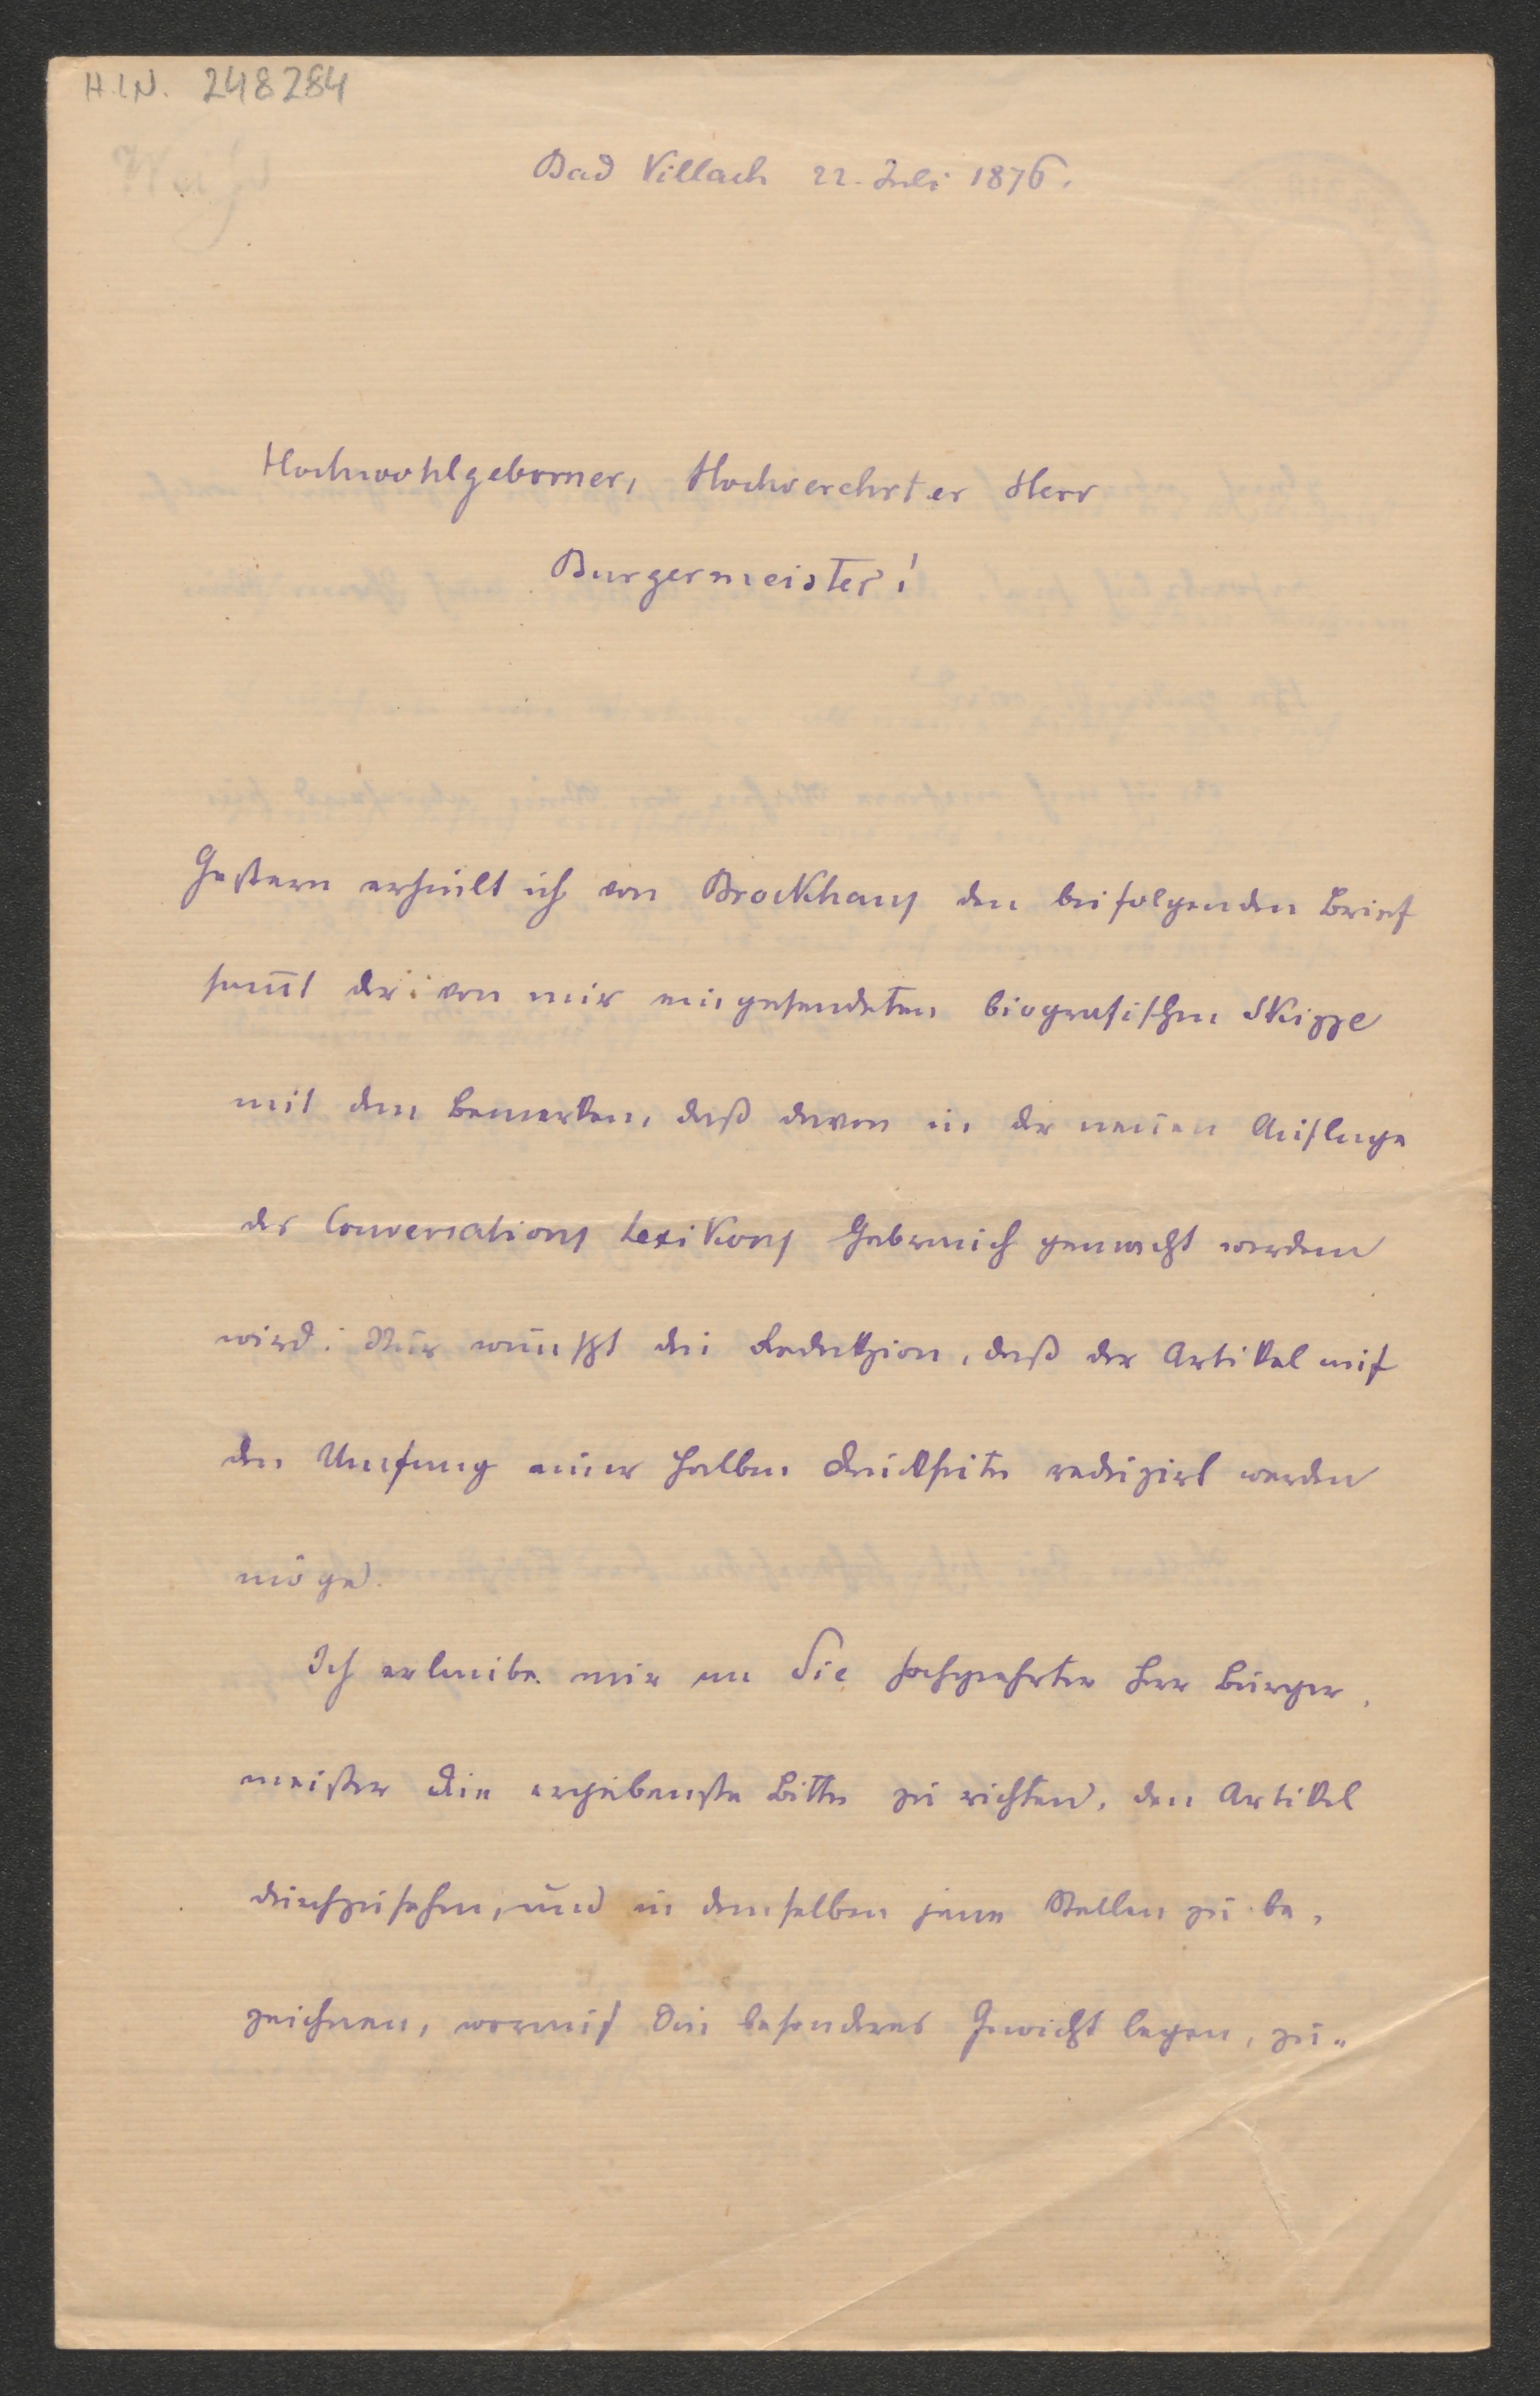 H.I.N. 248284
Bad Villach 22. Juli 1876.
Hochwohlgeborner, Hochverehrter Herr
Burgermeister!
Gestern erhielt ich von Brockhaus den beifolgenden Brief
sam̄t der von mir eingesendeten biografischen Skizze
mit dem Bemerken, daß davon in der neuen Auflage
des Conversations Lexikons Gebrauch gemacht werden
wird. Nur wünscht die Redakzion, daß der Artikel auf
den Umfang einer halben Druckseite reduzirt werden
möge.
Ich erlaube mir an Sie hochgeehrter Herr Bürger,
meister die ergebenste Bitte zu richten, den Artikel
durchzusehen, und in demselben jene Stellen zu be,
zeichnen, worauf Sie besonderes Gewicht legen, zu„